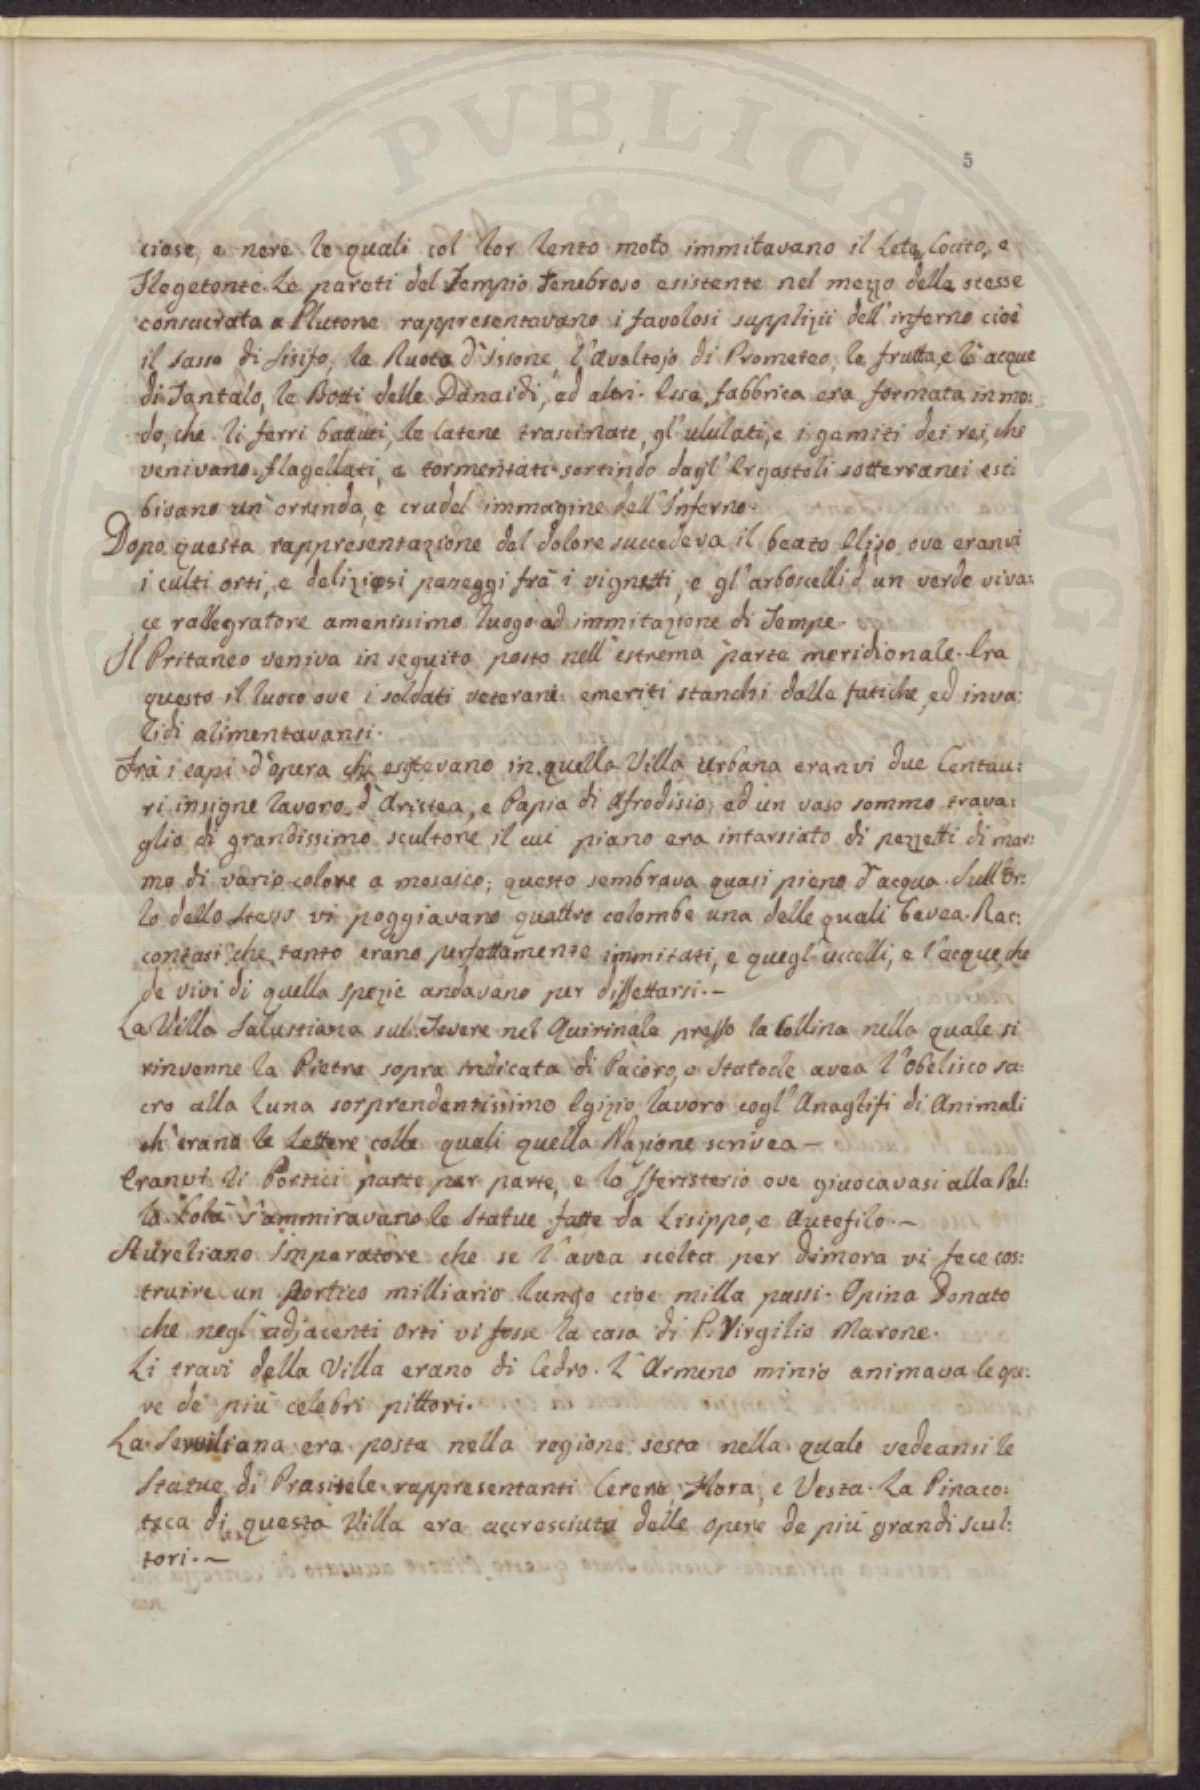 5
ciose, e nere le quali col lor lento moto immitavano il Lete, Cocito, e
Flegetonte. Le pareti del Tempio Tenebroso esistente nel mezzo delle stesse
consacrata a Plutone rappresentavano i favolosi supplizii dell'inferno cioè
il sasso di Sisifo, la Ruota d'Issione, l'avoltojo di Prometeo, le frutta, e le acque
di Tantalo, le Botti delle Danaidi, ed altri. Essa fabbrica era formata in mo:
do, che li ferri battuti, le catene trascinate, gl'ululati, e i gemiti dei rei, che
venivano flagellati, e tormentati sortindo dagl'Ergastoli sotterranei esi
bivano un'orrenda, e crudel immagine dell'Inferno.
Dopo questa rappresentazione del dolore succedeva il beato Elizo, ove eranvi
i culti orti, e deliziosi passeggi frà i vignetti, e gl'arboscelli d'un verde viva:
ce rallegratore amenissimo luogo ad immitazione di Tempe.
Il Pritaneo veniva in seguito posto nell'estrema parte meridionale. Era
questo il luoco ove i soldati veterani emeriti stanchi dalle fatiche, ed inva:
lidi alimentavansi.
Frà i capi d'opera che esistevano in quella Villa Urbana eranvi due Centau:
ri insigne lavoro d'Aristea, e Papia di Afrodisio; ed un vaso sommo trava:
glio di grandissimo scultore il cui piano era intarsiato di pezzetti di mar:
mo di vario colore a mosaico; questo sembrava quasi pieno d'acqua. Sull'Or:
lo dello stesso vi poggiavano quattro colombe una delle quali bevea. Rac:
contasi che tanto erano perfettamente immitati, e quegl'uccelli, e l'acque, che
de vivi di quella spezie andavano per dissettarsi.—
La Villa Salustiana sul Tevere nel Quirinale presso la Collina nella quale si
rinvenne la Pietra sopra indicata di Pacoro, e Statocle avea l'Obelisco sa:
cro alla Luna sorprendentissimo Egizio lavoro cogl'Anaglifi di Animali
ch'erano le Lettere colle quali quella Nazione scrivea—
Eranvi li Portici parte per parte, e lo Sferisterio ove giuocavasi alla Pal:
la. Colà s'ammiravano le Statue fatte da Lisippo, e Autefilo.—
Aureliano Imperatore che se l'avea scelta per dimora vi fece cos:
truire un portico milliario lungo cioè milla passi. Opina Donato
che negl'adjacenti orti vi fosse la casa di P. Virgilio Marone.
Li travi della Villa erano di Cedro. L'Armeno minio animava le ope:
re de più celebri pittori.
La Serviliana era posta nella regione sesta nella quale vedeansi le
Statue di Prasitele rappresentanti Cerere, Flora, e Vesta. La Pinaco:
teca di questa Villa era accresciuta delle opere de più grandi scul:
tori.—